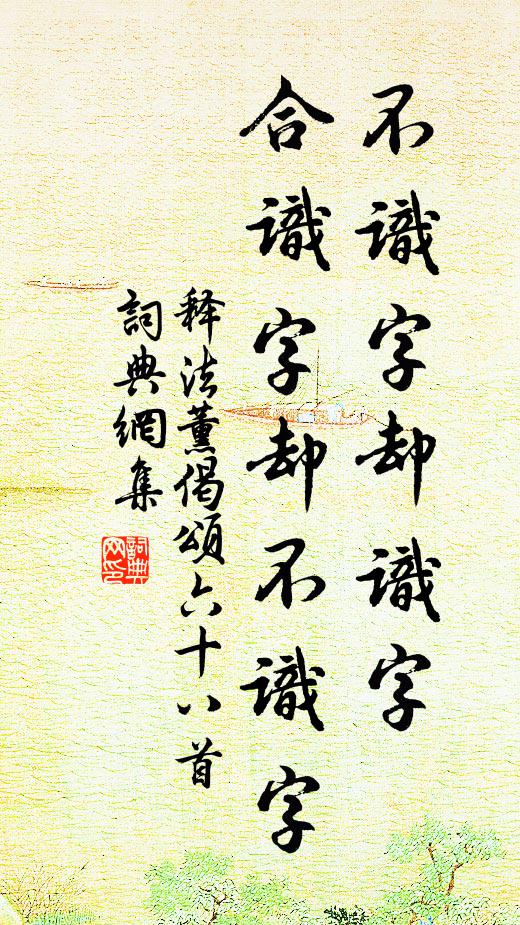 不識字却識字
合識字却不識字
释法薰偈頌六十八首
詞典網集
詞典网印